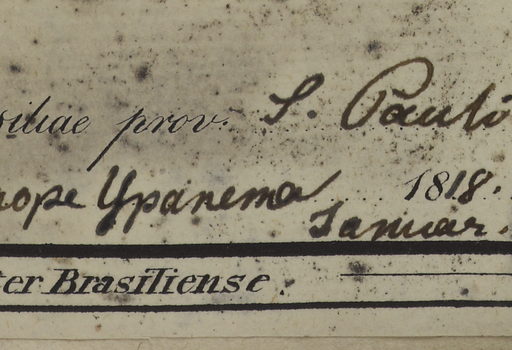 siliae prov. S. Pauli
prope Ypanema 1818.
Januar.
ter Brasiliense.